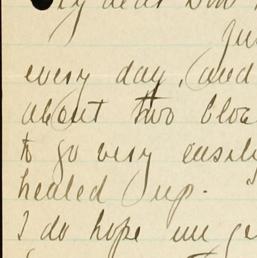 My dear
every day, (and
about two
to go very easily
healed up.
I do hope